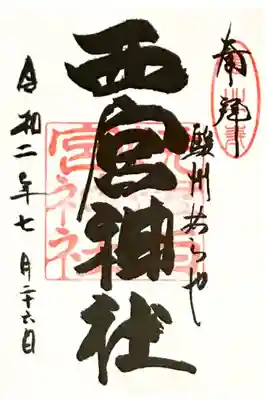 奉拝
駿州あらや
西宮神社
令和二年七月二十六日